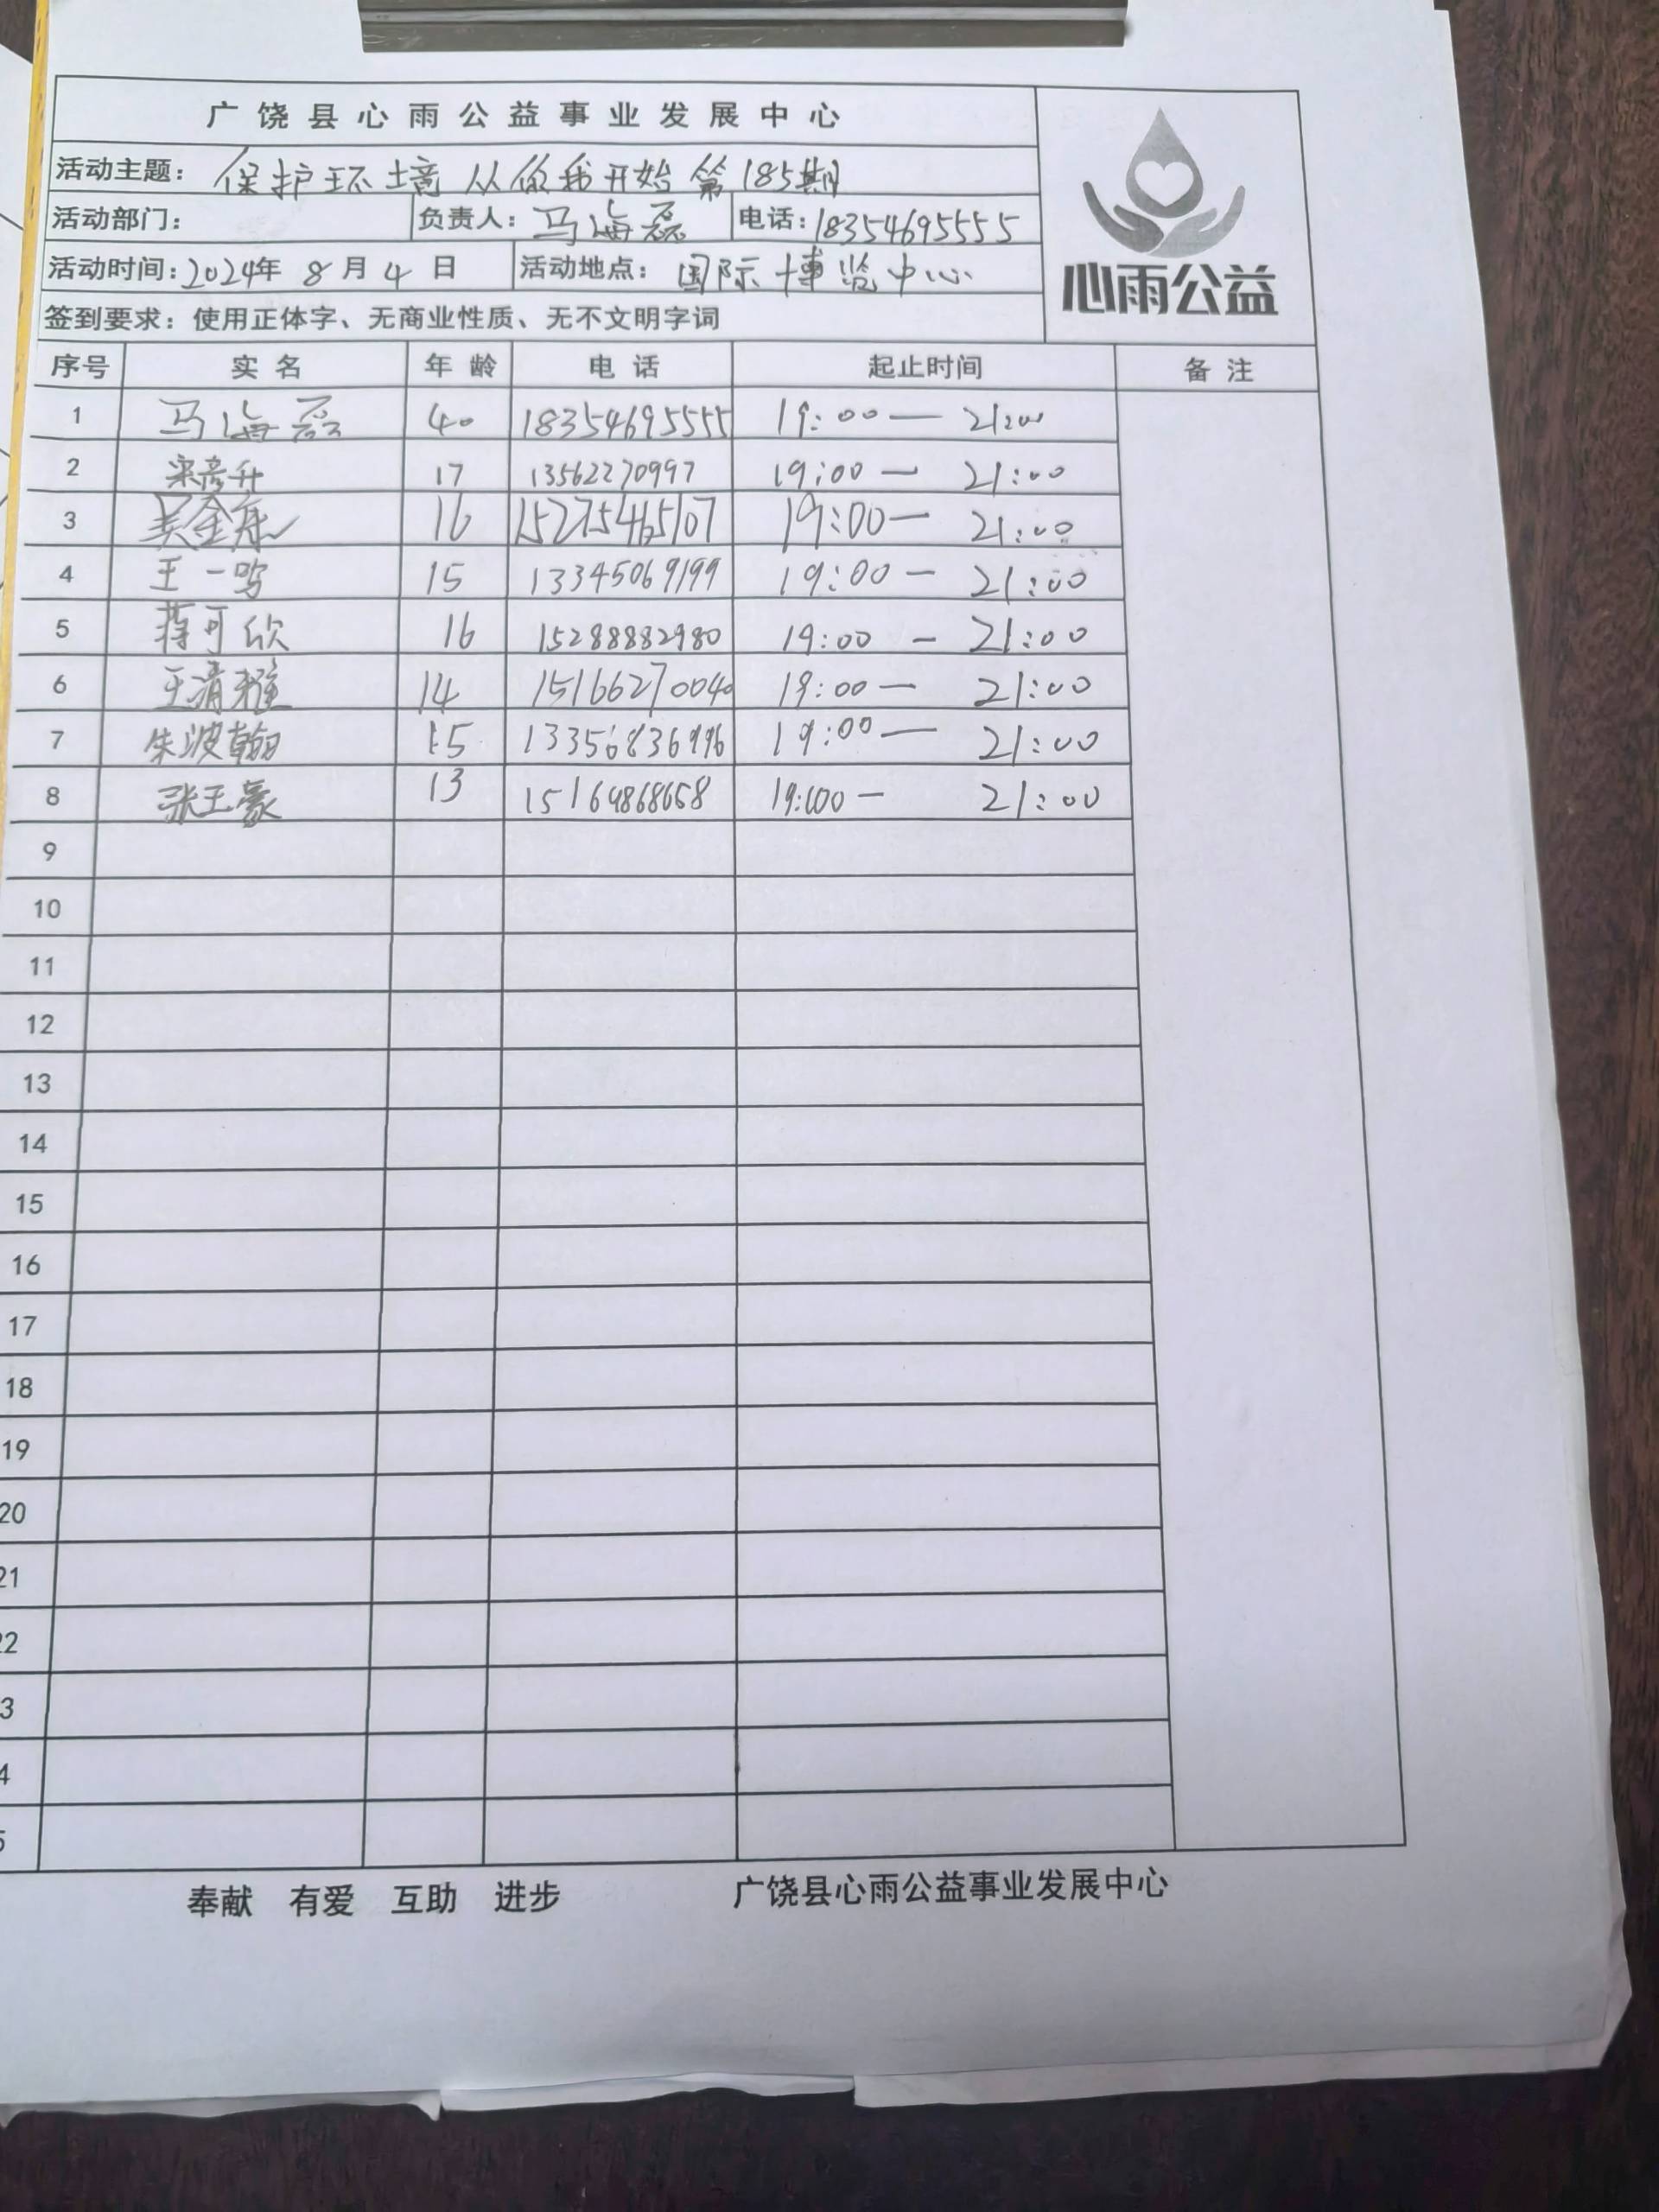 广饶县心雨公益事业发展中心
活动主题: 保护环境 从你我开始 第185期
活动部门: 负责人: 马海磊 电话: 18354695555
活动时间: 2024年 8 月 4 日 活动地点: 国际博览中心
签到要求: 使用正体字、无商业性质、无不文明字词
心雨公益
序号 实名 年龄 电话 起止时间 备注
1 马海磊 40 18354695555 19:00— 21:00
2 宋彦升 17 13562270997 19:00— 21:00
3 吴金 16 15275465107 19:00— 21:00
4 王一鸣 15 13345069199 19:00— 21:00
5 蒋可欣 16 15288882980 19:00— 21:00
6 王清雅 14 15166270040 19:00— 21:00
7 朱波翰 15 13356836996 19:00— 21:00
8 张王豪 13 15164868658 19:00— 21:00
9
10
11
12
13
14
15
16
17
18
19
20
21
22
3
4
5
奉献 有爱 互助 进步 广饶县心雨公益事业发展中心